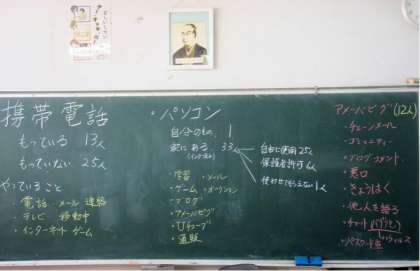 携帯電話
もっている 13人
もっていない 25人
やっていること
・電話、メール 連絡
・テレビ 移動中
・インターネット ゲーム
・パソコン
自分のもの 1
家にある 33人
(インターネット)
自由に使用 25人
保護者許可 6人
使わせてもらえない 1人
・学習 ・メール
・ゲーム ・オークション
・ブログ
・アメーバピグ
・Uチューブ
・通販
アメーバピグ(12人)
・チェーンメール
・コミュニティー
・ブログコメント
・悪口
・きょうはく
・他人を語る
・チャット
・パスワード